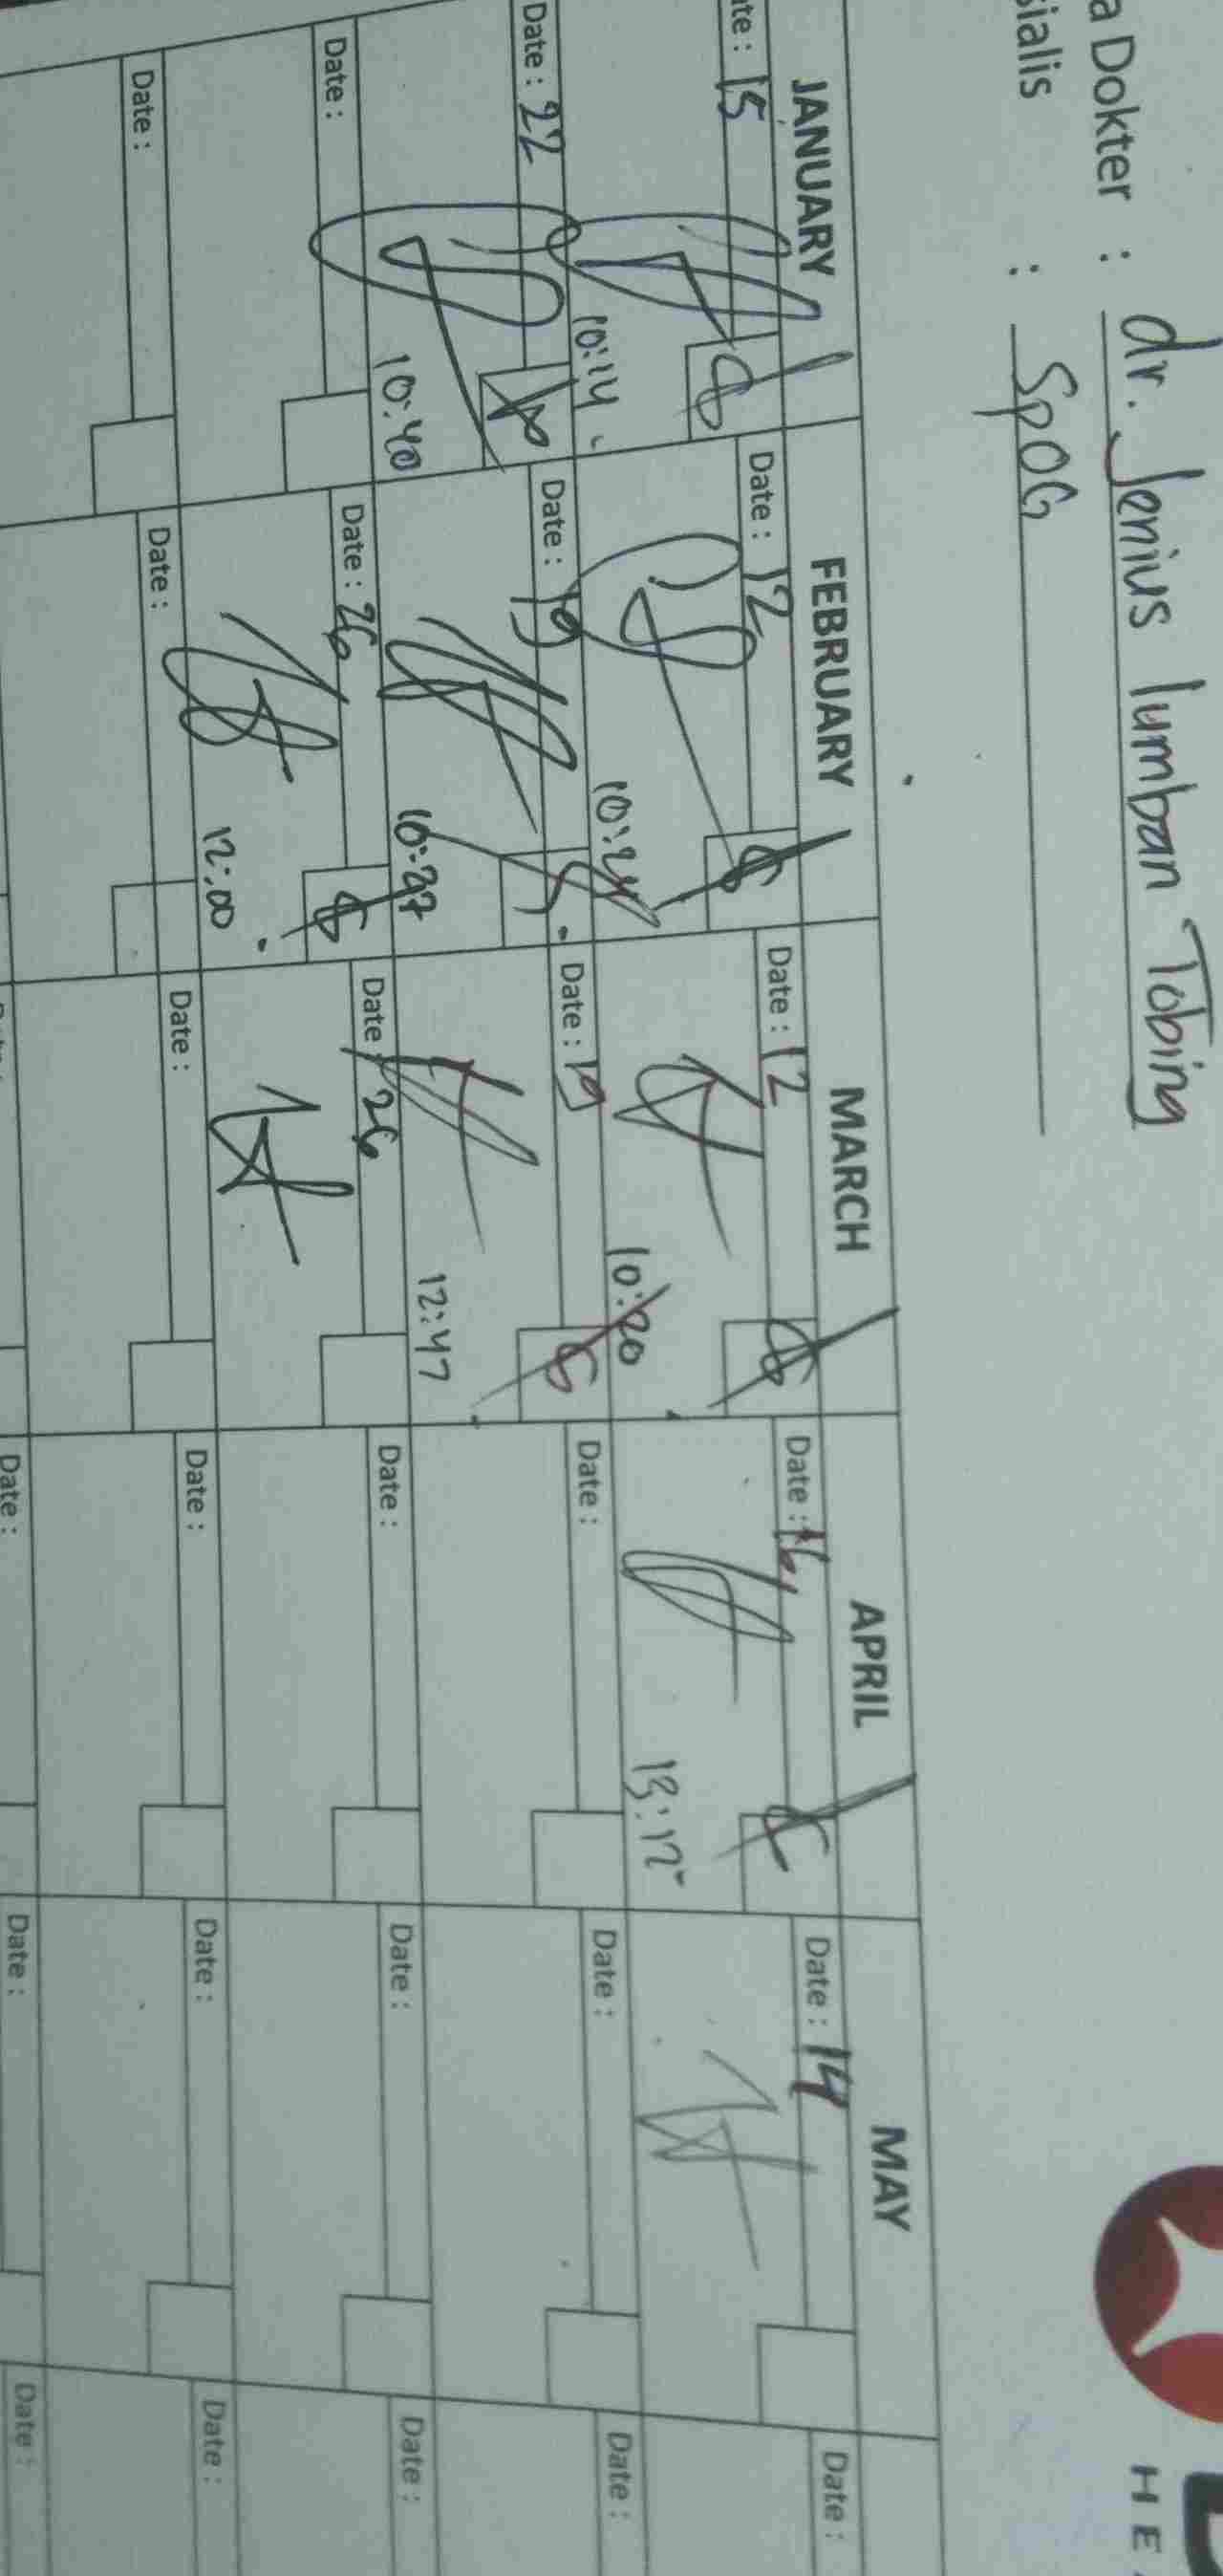 a Dokter : dr. Jenius lumban Tobing
sialis : SpOG
JANUARY FEBRUARY MARCH APRIL MAY
ate : 15 Date : 12 Date : 12 Date : 16 Date : 14 Date :
10:14 10:24 10:20 13:12
Date : 22 Date : 19 Date : 19 Date : Date : Date :
10:40 10:27 12:47
Date : Date : 26 Date 26 Date : Date : Date :
12:00
Date : Date : Date : Date : Date : Date :
Date : Date : Date :
HE